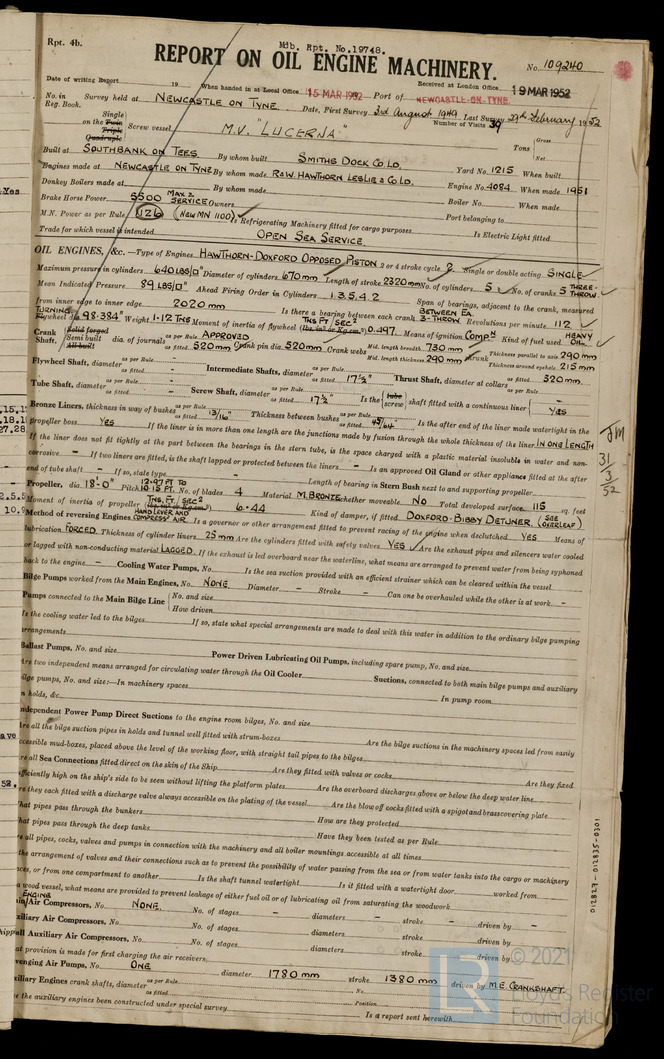 Rpt. 4b.
Mdb. Rpt. No. 19748.
REPORT ON OIL ENGINE MACHINERY.
No. 109240
Received at London Office 19 MAR 1952
Date of writing Report 19 When handed in at Local Office 15 MAR 1952 Port of NEWCASTLE-ON-TYNE.
No. in Reg. Book. Survey held at NEWCASTLE ON TYNE. Date, First Survey 3rd August 1949 Last Survey 29th February 1952
Number of Visits 39
on the Single Twin Triple Quadruple Screw vessel M.V. "LUCERNA" Tons Gross Net
Built at SOUTHBANK ON TEES By whom built SMITHS DOCK CO LD. Yard No. 1215 When built
Engines made at NEWCASTLE ON TYNE By whom made R & W. HAWTHORN LESLIE & CO LD. Engine No. 4084 When made 1951
Donkey Boilers made at By whom made Boiler No. When made
Brake Horse Power 5500 MAX SERVICE Owners Port belonging to
M.N. Power as per Rule 1126 (NEW MN 1100) Is Refrigerating Machinery fitted for cargo purposes Is Electric Light fitted
Trade for which vessel is intended OPEN SEA SERVICE.
OIL ENGINES, &c.—Type of Engines HAWTHORN-DOXFORD OPPOSED PISTON 2 or 4 stroke cycle 2 Single or double acting SINGLE
Maximum pressure in cylinders 640 LBS/□" Diameter of cylinders 670 mm Length of stroke 2320 mm No. of cylinders 5 No. of cranks 5 THREE-THROW.
Mean Indicated Pressure 89 LBS/□" Ahead Firing Order in Cylinders 1.3.5.4.2 Span of bearings, adjacent to the crank, measured
from inner edge to inner edge 2020 mm Is there a bearing between each crank BETWEEN EA. 3-THROW Revolutions per minute 112
TURNING Flywheel dia. 98.384" Weight 1.12 TNS Moment of inertia of flywheel (lbs. in² or Kg. cm²) TNS FT/SEC² 0.497 Means of ignition COMPN Kind of fuel used HEAVY OIL
Crank Shaft, Solid forged Semi built All built dia. of journals as per Rule APPROVED as fitted 520 mm Crank pin dia 520 mm Crank webs Mid. length breadth 730 mm Mid. length thickness 290 mm shrunk Thickness parallel to axis 290 mm Thickness around eyehole 215 mm
Flywheel Shaft, diameter as per Rule as fitted Intermediate Shafts, diameter as per Rule as fitted 17½" Thrust Shaft, diameter at collars as per Rule as fitted 520 mm
Tube Shaft, diameter as per Rule as fitted Screw Shaft, diameter as per Rule as fitted 17½" Is the tube screw shaft fitted with a continuous liner YES
Bronze Liners, thickness in way of bushes as per Rule as fitted 13/16" Thickness between bushes as per Rule as fitted 45/64" Is the after end of the liner made watertight in the
propeller boss YES If the liner is in more than one length are the junctions made by fusion through the whole thickness of the liner IN ONE LENGTH
If the liner does not fit tightly at the part between the bearings in the stern tube, is the space charged with a plastic material insoluble in water and non-
corrosive – If two liners are fitted, is the shaft lapped or protected between the liners – Is an approved Oil Gland or other appliance fitted at the after
end of tube shaft – If so, state type – Length of bearing in Stern Bush next to and supporting propeller
Propeller, dia 18'-0" Pitch 12.97 FT TO 10.15 FT. No. of blades 4 Material M. BRONZE whether moveable NO Total developed surface 115 sq. feet
Moment of inertia of propeller (lbs. in² or Kg. cm²) TNS. FT/SEC² 6.44 Kind of damper, if fitted DOXFORD-BIBBY DETUNER. (SEE OVERLEAF)
Method of reversing Engines HAND LEVER AND COMPRESS'D AIR Is a governor or other arrangement fitted to prevent racing of the engine when declutched YES Means of
lubrication FORCED Thickness of cylinder liners 25 mm Are the cylinders fitted with safety valves YES Are the exhaust pipes and silencers water cooled
or lagged with non-conducting material LAGGED. If the exhaust is led overboard near the waterline, what means are arranged to prevent water from being syphoned
back to the engine – Cooling Water Pumps, No. Is the sea suction provided with an efficient strainer which can be cleared within the vessel
Bilge Pumps worked from the Main Engines, No. NONE. Diameter – Stroke – Can one be overhauled while the other is at work –
Pumps connected to the Main Bilge Line No. and size How driven
Is the cooling water led to the bilges If so, state what special arrangements are made to deal with this water in addition to the ordinary bilge pumping
arrangements
Ballast Pumps, No. and size Power Driven Lubricating Oil Pumps, including spare pump, No. and size
Are two independent means arranged for circulating water through the Oil Cooler Suctions, connected to both main bilge pumps and auxiliary
bilge pumps, No. and size:—In machinery spaces In pump room
In holds, &c.
Independent Power Pump Direct Suctions to the engine room bilges, No. and size
Are all the bilge suction pipes in holds and tunnel well fitted with strum-boxes Are the bilge suctions in the machinery spaces led from easily
accessible mud-boxes, placed above the level of the working floor, with straight tail pipes to the bilges
Are all Sea Connections fitted direct on the skin of the Ship Are they fitted with valves or cocks Are they fixed
sufficiently high on the ship's side to be seen without lifting the platform plates Are the overboard discharges above or below the deep water line
Are they each fitted with a discharge valve always accessible on the plating of the vessel Are the blow off cocks fitted with a spigot and brass covering plate
What pipes pass through the bunkers How are they protected
What pipes pass through the deep tanks Have they been tested as per Rule
Are all pipes, cocks, valves and pumps in connection with the machinery and all boiler mountings accessible at all times
Is the arrangement of valves and their connections such as to prevent the possibility of water passing from the sea or from water tanks into the cargo or machinery
spaces, or from one compartment to another Is the shaft tunnel watertight Is it fitted with a watertight door worked from
If a wood vessel, what means are provided to prevent leakage of either fuel oil or of lubricating oil from saturating the woodwork
ENGINE
Main Air Compressors, No. NONE. No. of stages – diameters – stroke – driven by –
Auxiliary Air Compressors, No. No. of stages diameters stroke driven by
Small Auxiliary Air Compressors, No. No. of stages diameters stroke driven by
What provision is made for first charging the air receivers
Scavenging Air Pumps, No. ONE diameter 1780 mm stroke 1380 mm driven by M.E. CRANKSHAFT.
Auxiliary Engines crank shafts, diameter as per Rule as fitted No. Position
Have the auxiliary engines been constructed under special survey Is a report sent herewith
JM
31/3/52
012827-012835-0301
© 2021
Lloyd's Register
Foundation
LR